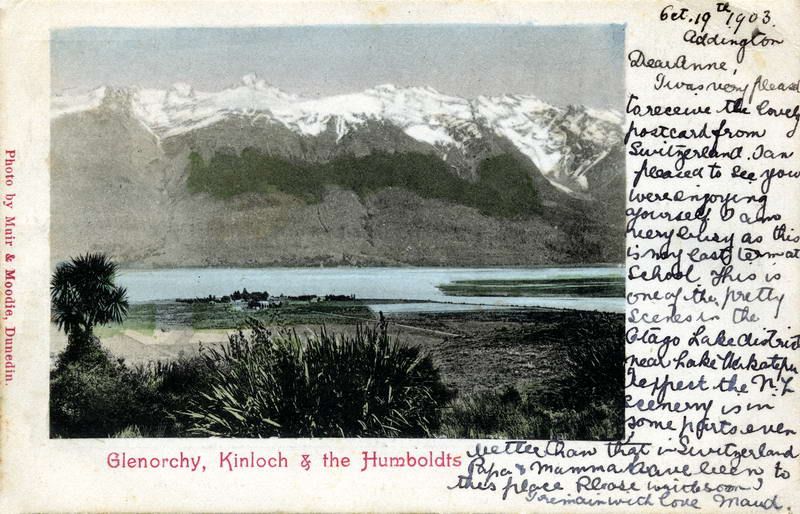 Oct. 19th 1903.
Addington
Dear Anne,
I was very pleased
to receive the lovely
postcard from
Switzerland. I am
pleased to see you
were enjoying
yourself. I am
very busy as this
is my last term at
School. This is
one of the pretty
scenes in the
Otago Lake district
near Lake Wakatipu
I expect the N.Z
scenery is in
some parts even
better than that in Switzerland
Papa & Mamma have been to
this place Please write soon
I remain with love Maud.
Photo by Muir & Moodie, Dunedin.
Glenorchy, Kinloch & the Humboldts